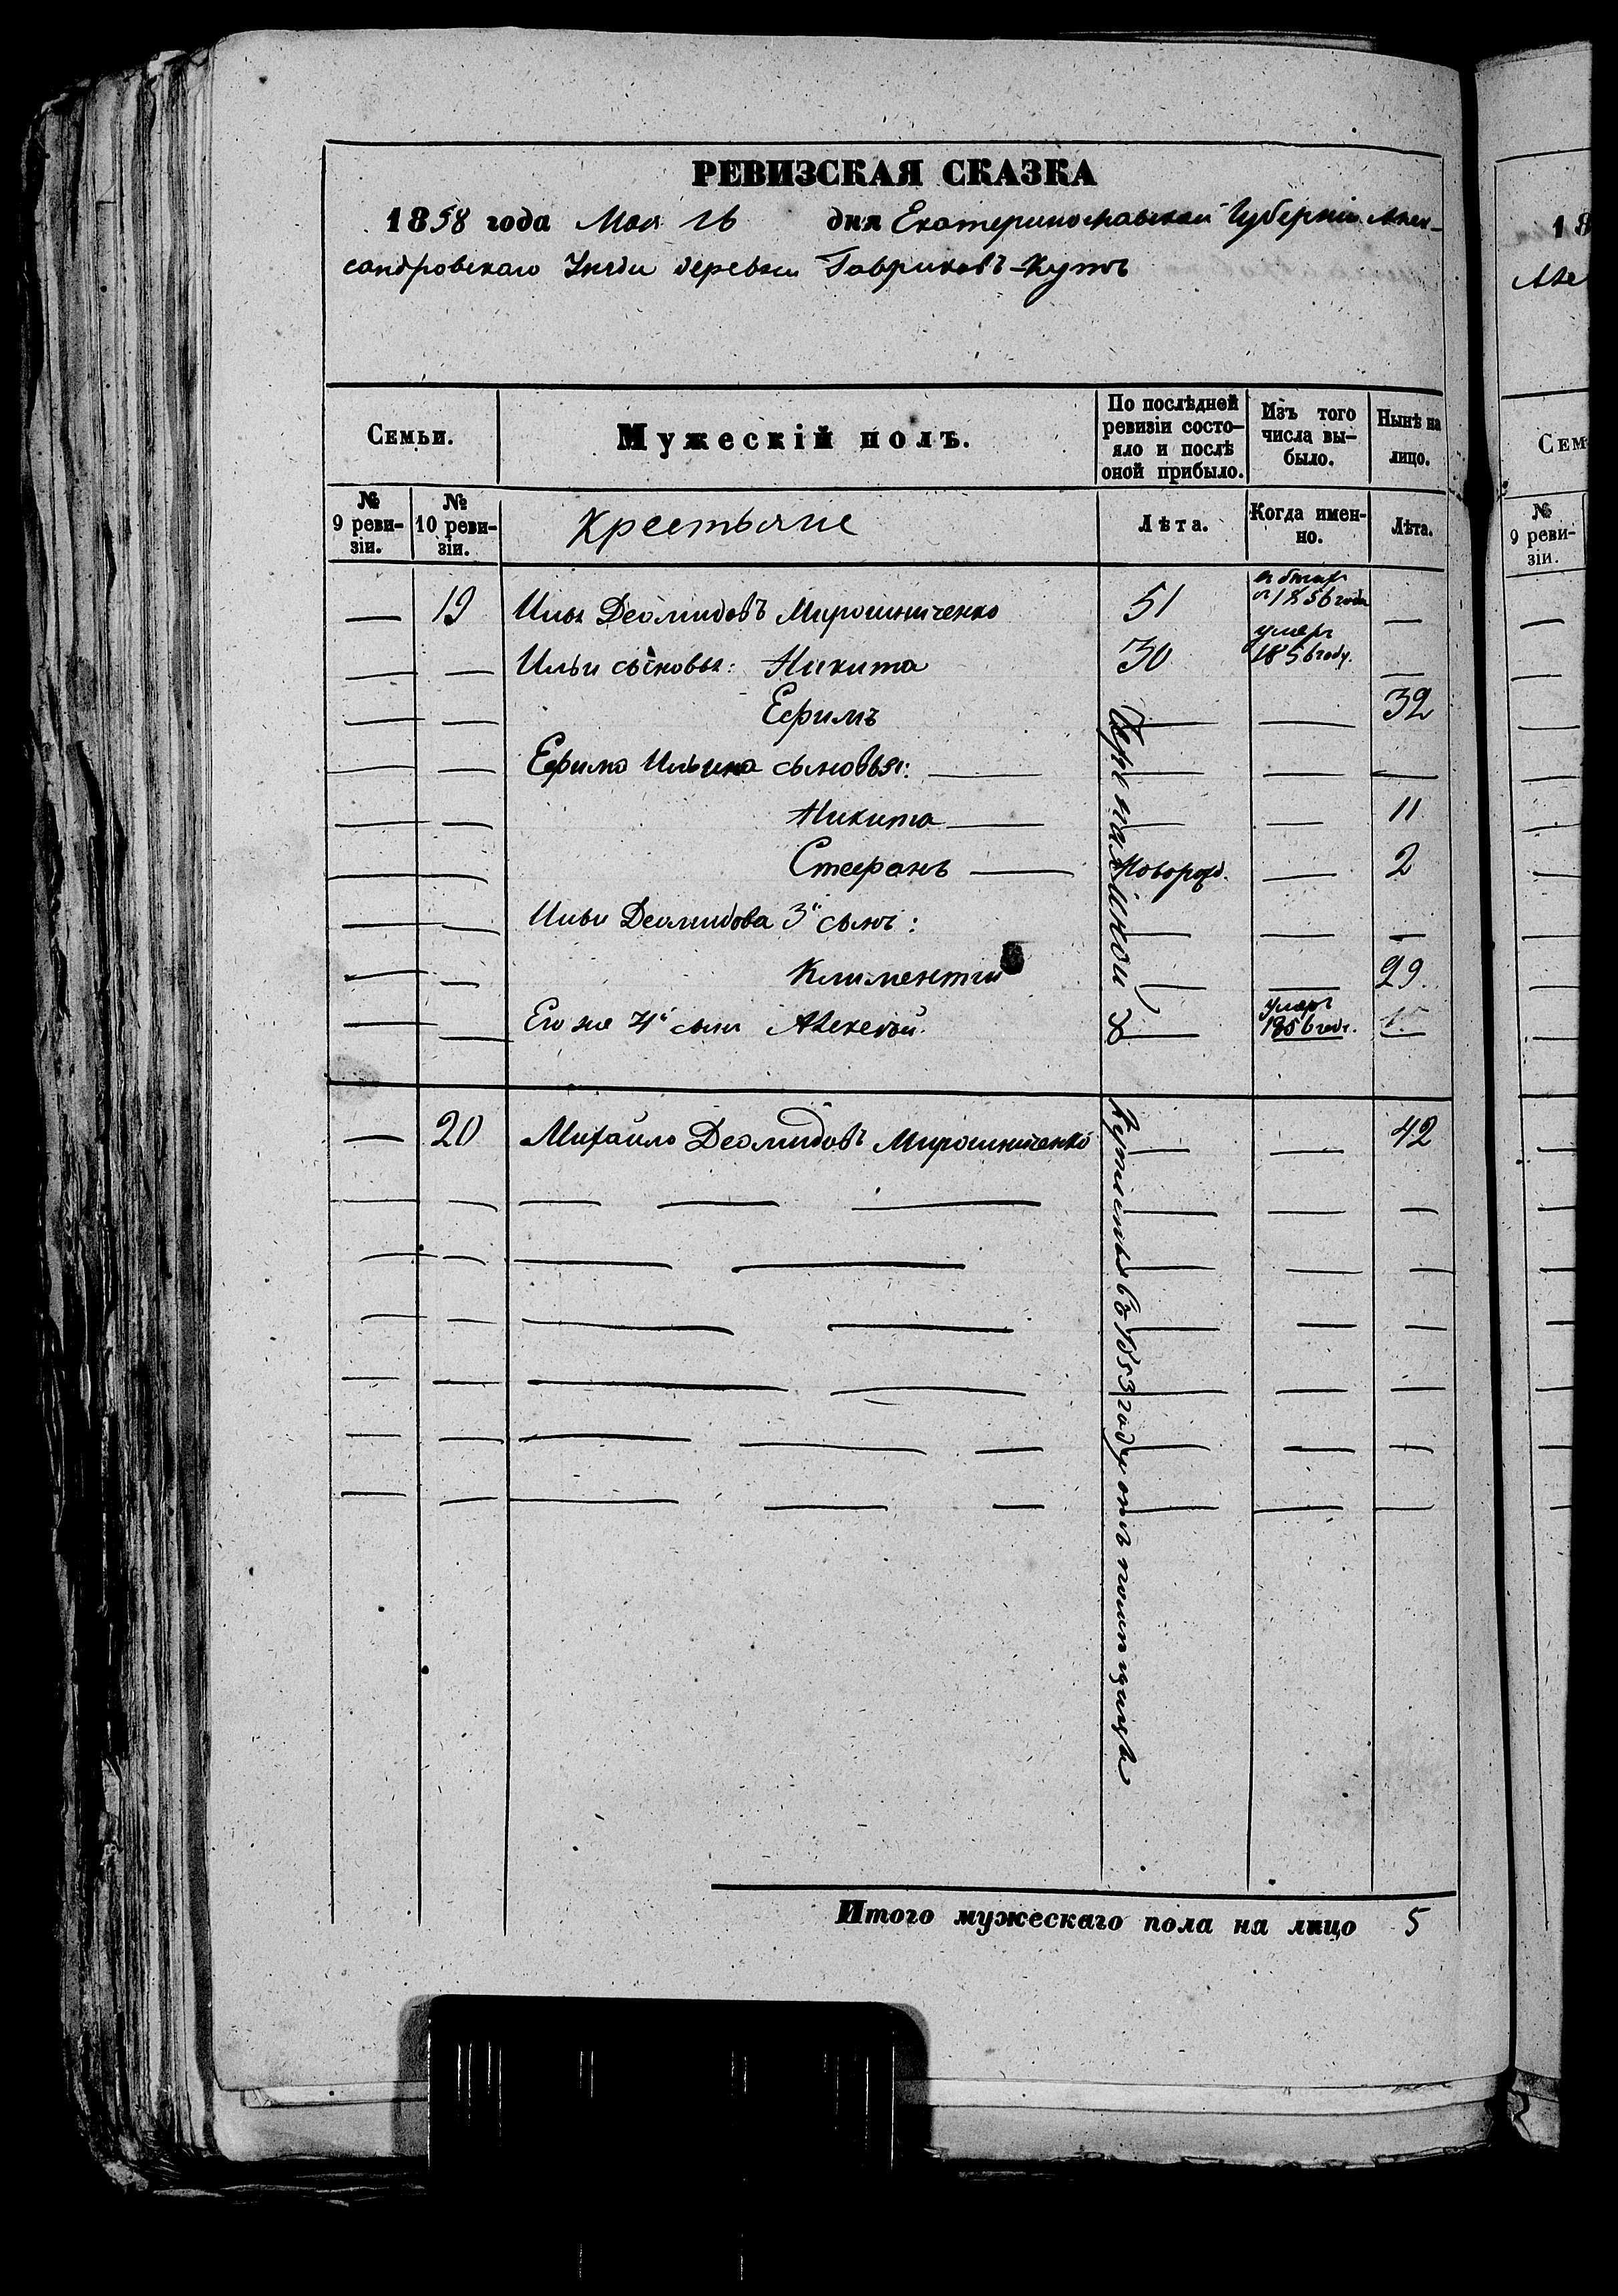 РЕВИЗСКАЯ СКАЗКА
1858 года Мая дня Екатеринославской Губерніи Алек-
сандровскаго Уезда деревни Гавриковъ-Кутъ
Семьи.
Мужескій полъ.
По послѣдней ревизіи состо-
яло и послѣ оной прибыло.
Изъ того числа вы-
было.
Нынѣ на лицо.
№ 9 реви-
зіи.
№ 10 реви-
зіи.
Крестьяне
Лѣта.
Когда имен-
но.
Лѣта.
— 19 Илья Деомидовъ Мирошниченко 51 1856 года —
— — Ильи сыновья: Никита 30 умеръ 1856 году. —
— — Ефимъ — — 32
— — Ефима Ильина сыновья: — — — —
— — Никита — — — 11
— — Стефанъ — Новорожд. — 2
— — Ильи Деомидова 3й сынъ: — — —
— — Климентий — — 29.
— — Его же 4й сынъ Алексей. — умеръ 1856 году. —
— 20 Михайло Деомидовъ Мирошниченко — — 42
Куплены въ 1853 году отъ помещицы
Итого мужескаго пола на лицо 5
18
Але
Сем
№
9 реви-
зіи.